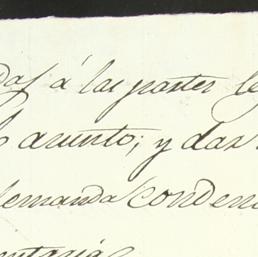 das á las partes le
l asunto; y dar
demanda conden
entaria